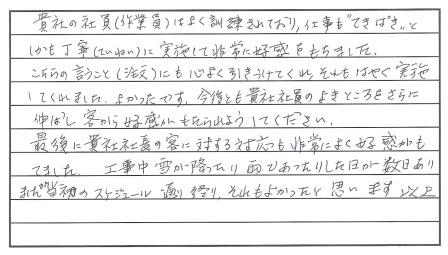 貴社の社員(作業員)はよく訓練されており,仕事も"てきぱき"と
しかも丁寧(ていねい)に実施して非常に好感をもちました.
こちらの言うこと(注文)にも心よく引きうけてくれ,それもはやく実施
してくれました. よかったです. 今後とも貴社社員のよきところをさらに
伸ばし 客から好感がもたられようしてください.
最後に貴社社長の客に対する対応も非常によく好感がも
てました. 工事中雪が降ったり雨であったりした日が数日あり
ましたが当初のスケジュール通り終り,それもよかったと思います 以上